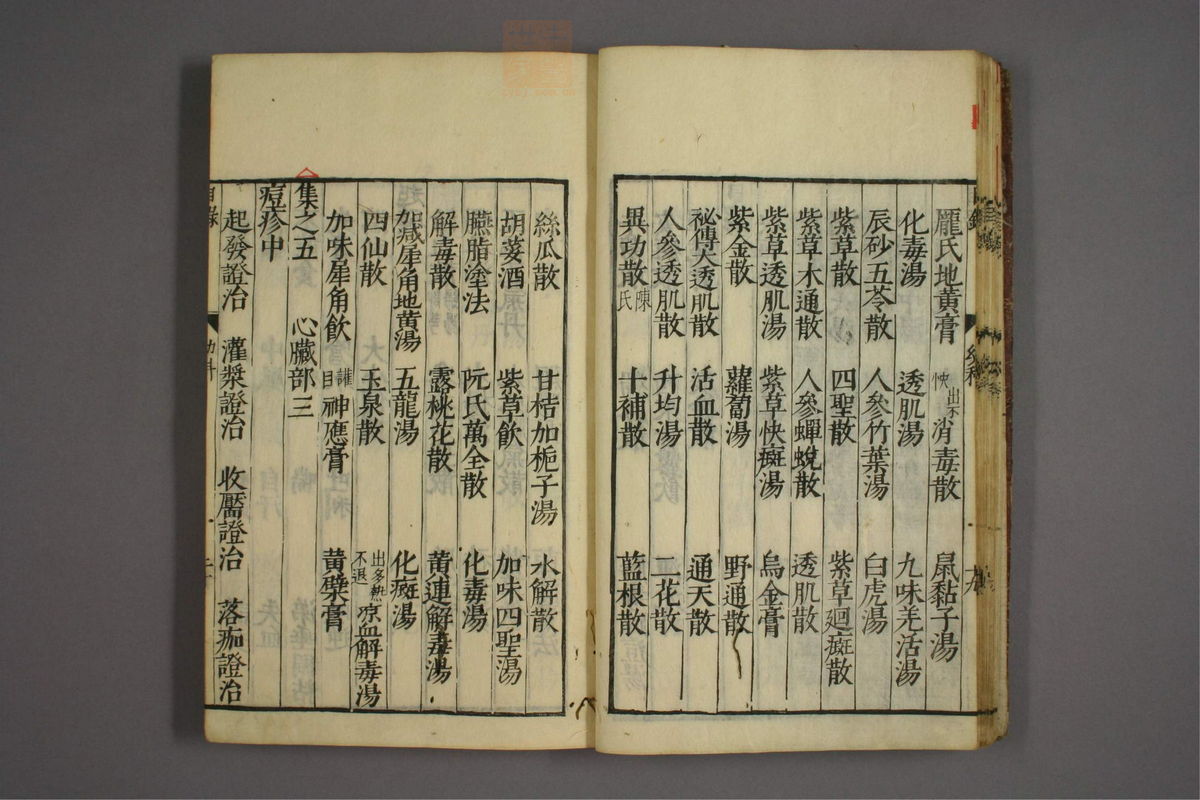 龐氏地黃膏 出不快 消毒散 鼠黏子湯
化毒湯 透肌湯 九味羌活湯
辰砂五苓散 人參竹葉湯 白虎湯
紫草散 四聖散 紫草廻癍散
紫草木通散 人參蟬蛻散 透肌散
紫草透肌湯 紫草快癍湯 烏金膏
紫金散 蘿蔔湯 野通散
祕傳天透肌散 活血散 通天散
人參透肌散 升均湯 二花散
異功散 陳氏 十補散 藍根散
絲瓜散 甘桔加梔子湯 水解散
胡荽酒 紫草飲 加味四聖湯
臙脂塗法 阮氏萬全散 化毒湯
解毒散 露桃花散 黃連解毒湯
加減犀角地黃湯 五龍湯 化癍湯
四仙散 玉泉散 出多熱不退 凉血解毒湯
加味犀角飲 護目 神應膏 黃檗膏
集之五 心臟部三
痘疹中
起發證治 灌漿證治 收靨證治 落痂證治
目錄 幼科